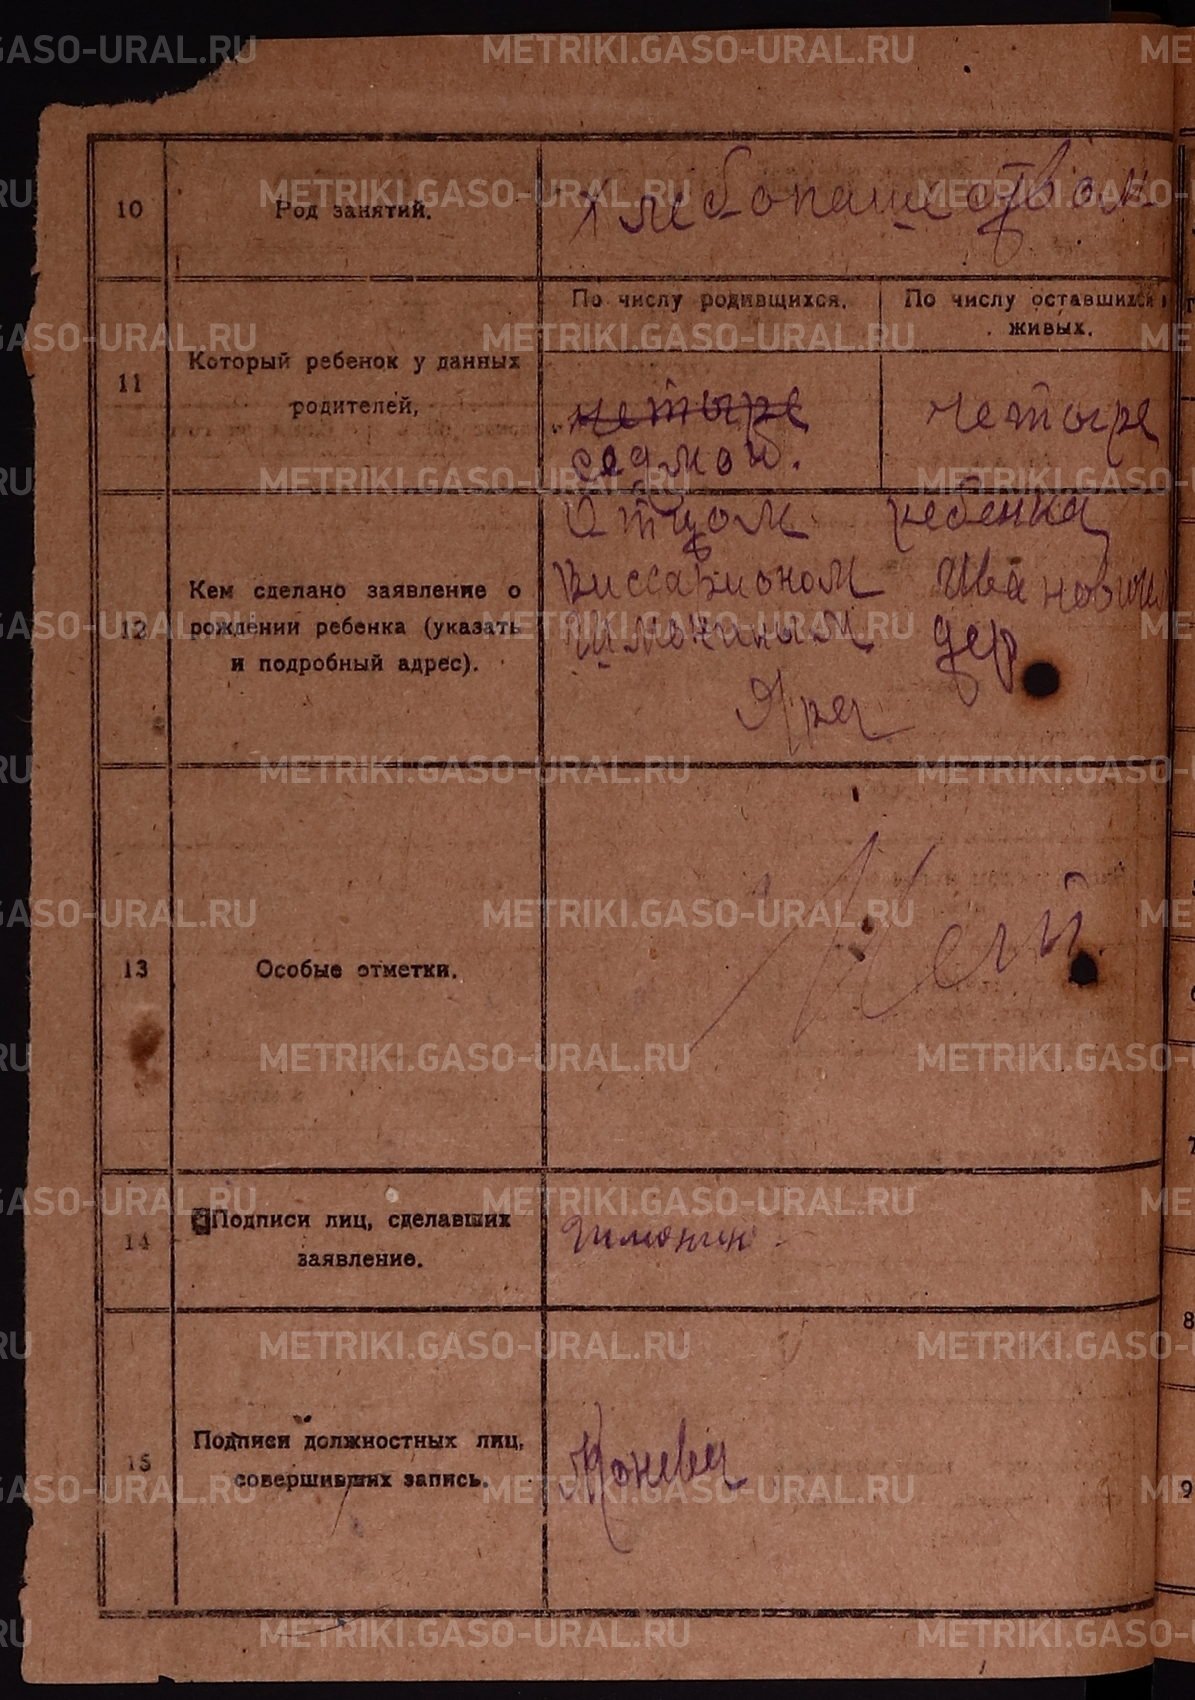 10
Род занятий.
Хлебопашеством
11
Который ребенок у данных
родителей,
По числу родившихся.
По числу оставшихся
живых.
четыре
седмой.
четыре
12
Кем сделано заявление о
рождении ребенка (указать
и подробный адрес).
Отцом ребенка
Виссарионом Иванович
Шмониным дер
Яра
13
Особые отметки.
14
Подписи лиц, сделавших
заявление.
Шмонин
15
Подписи должностных лиц,
совершивших запись.
Конева
METRIKI.GASO-URAL.RU
7
8
9